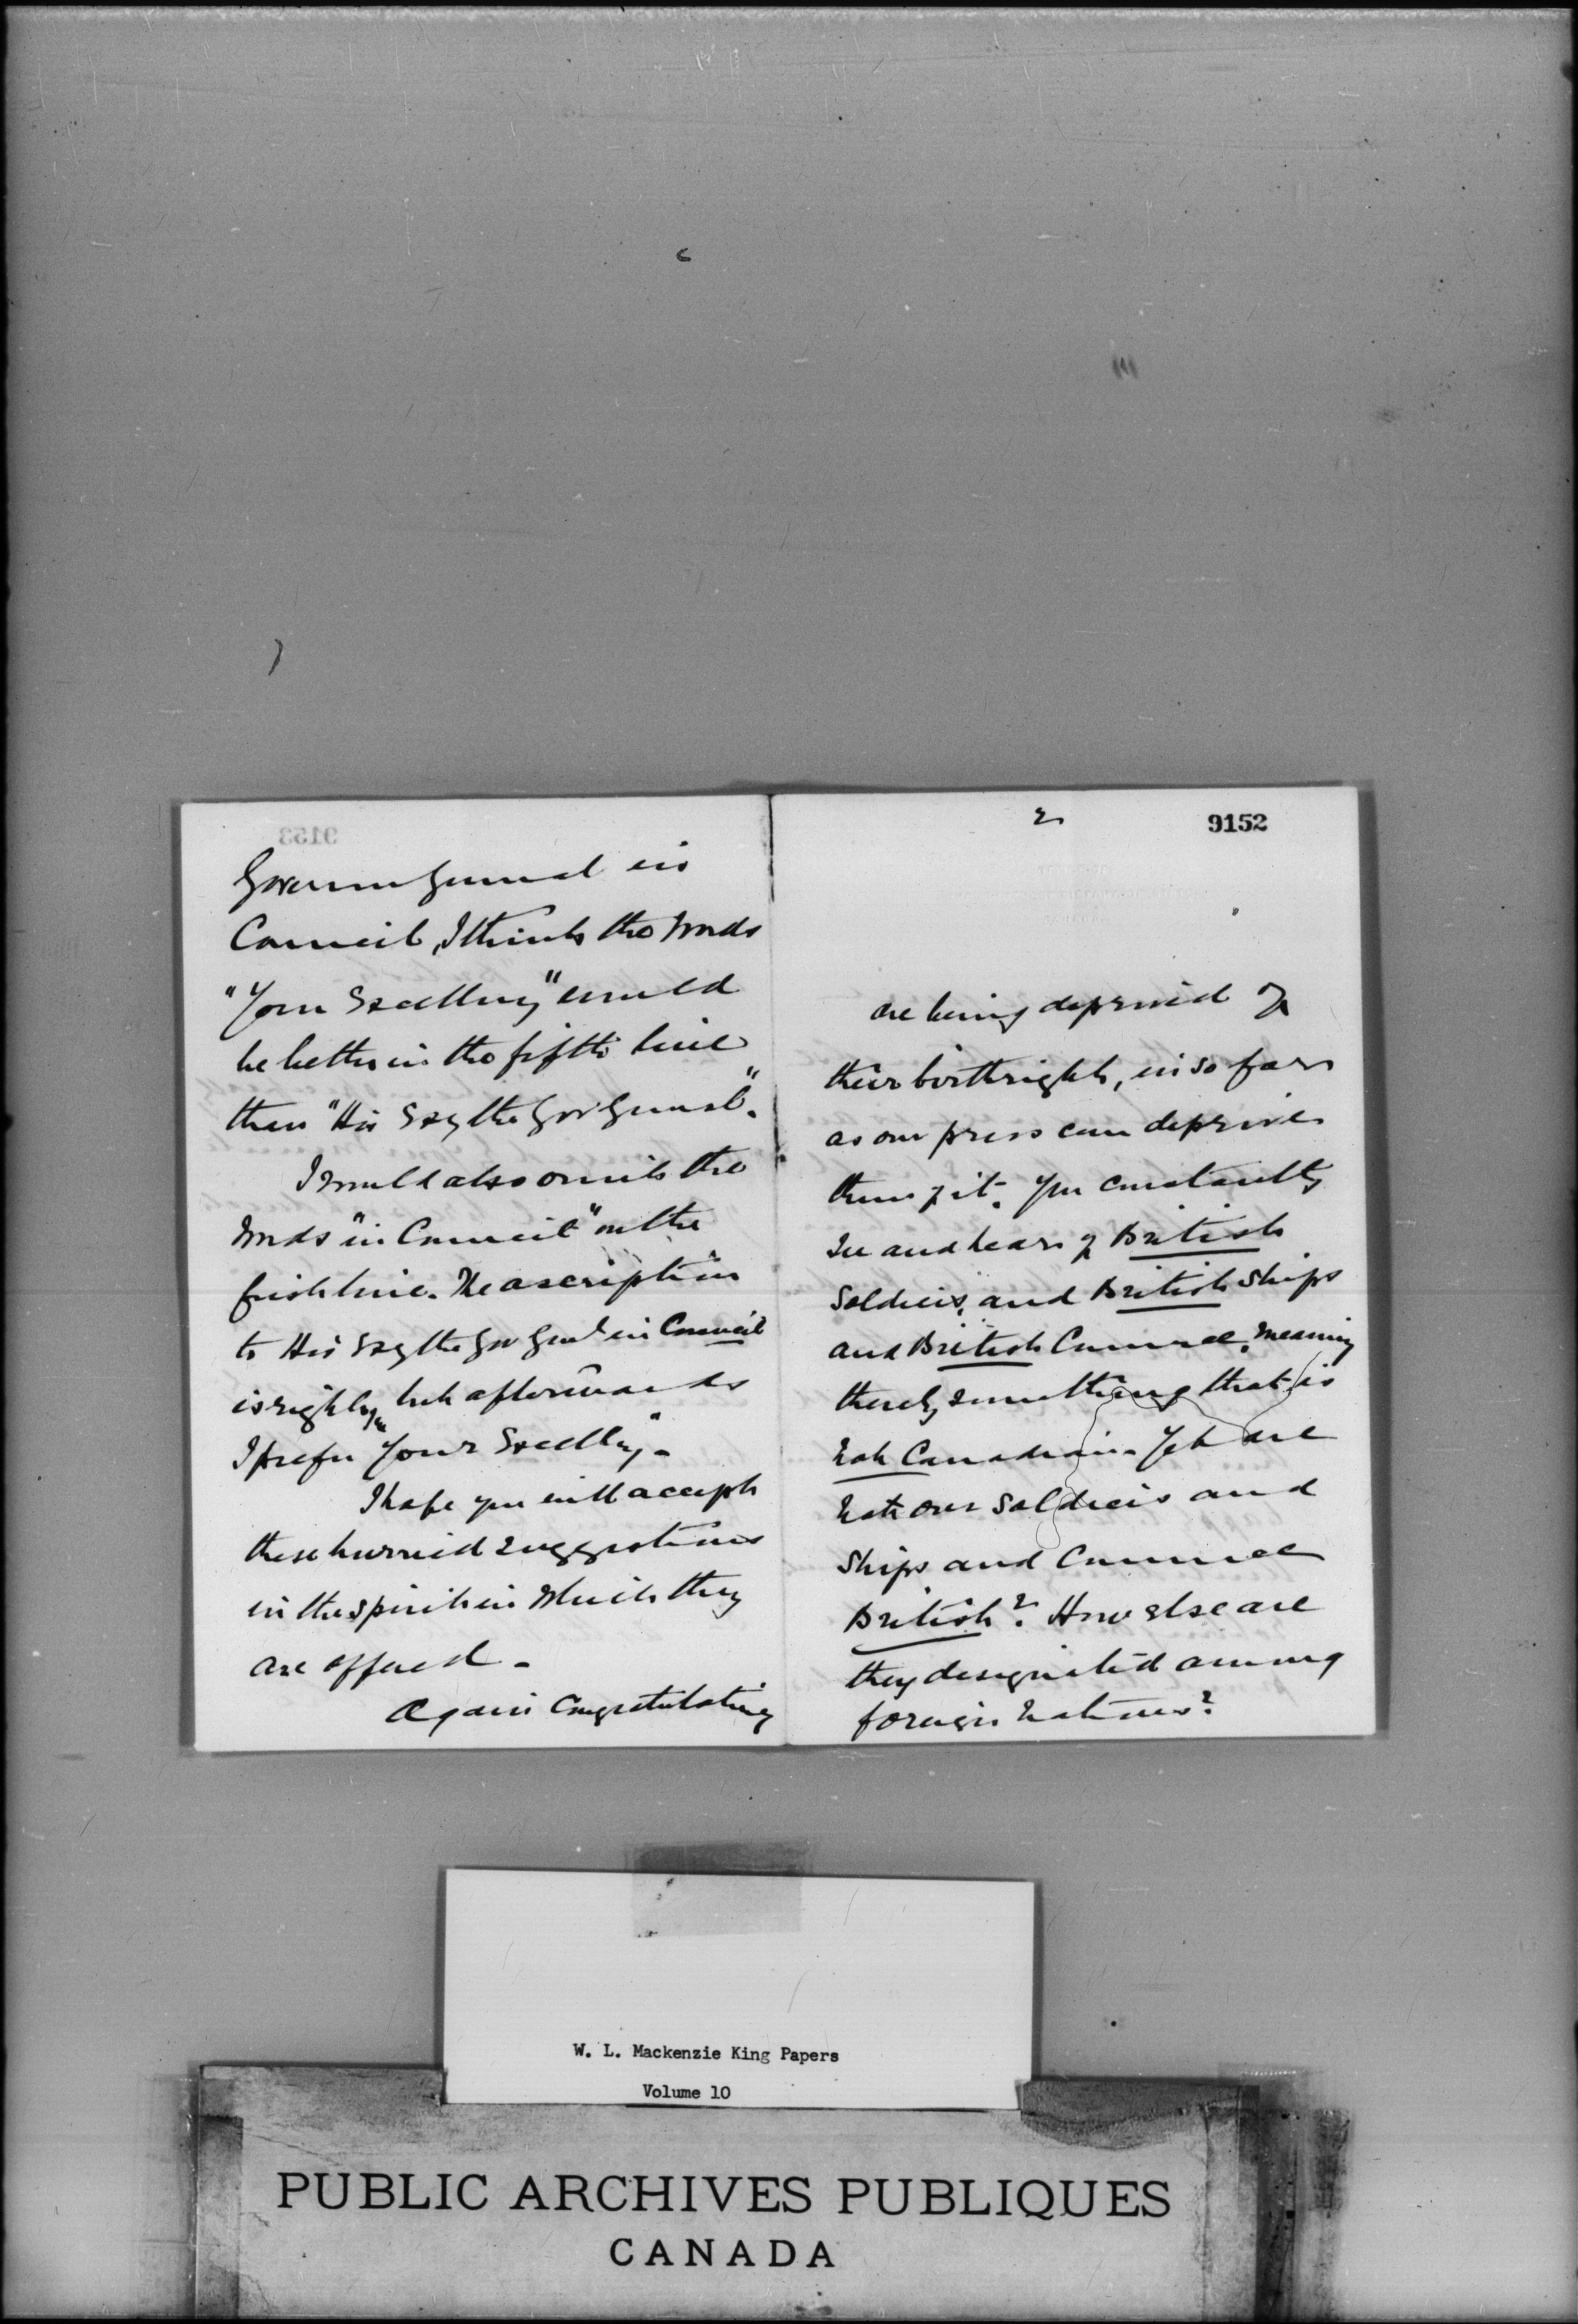 9153
Governor General in
Council, I think the words
"Your Excellency" would
be better in the fifth line
than "His Excy the Gov General".
I would also omit the
words "in Council" on the
first line. The ascription
to His Excy the Gov Genl in Council
is right but afterwards
I prefer "Your Excellency".
I hope you will accept
these hurried suggestions
in the spirit in which they
are offered.
Again Congratulating
2
9152
are being deprived of
their birthright, in so far
as our press can deprive
them of it. You constantly
see and hear of British
Soldiers, and British Ships
and British Commerce, meaning
thereby something that is
not Canadian. Yet are
not our Soldiers and
Ships and Commerce
British? How else are
they designated among
foreign Nations?
W. L. Mackenzie King Papers
Volume 10
PUBLIC ARCHIVES PUBLIQUES
CANADA